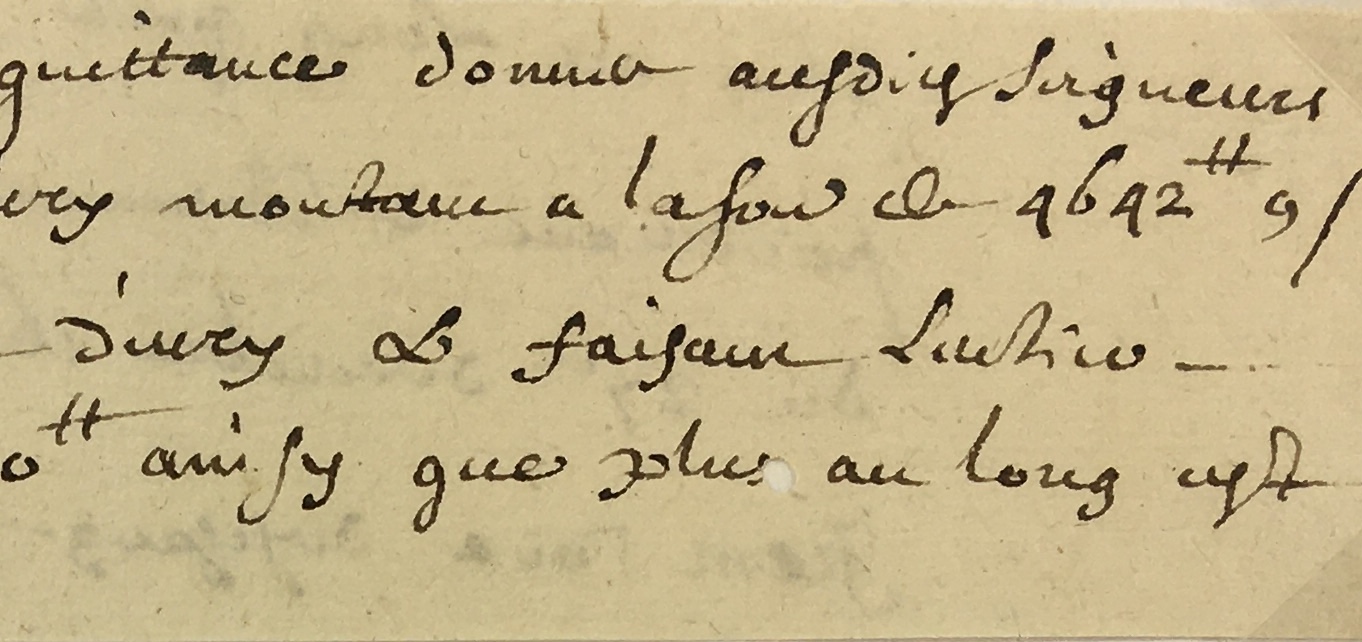 quittance donnee ausdits seigneurs
montant a la som de 4642 ₶ 9 s
d'ivry & faisant
0 ₶ ainsy que plus au long est